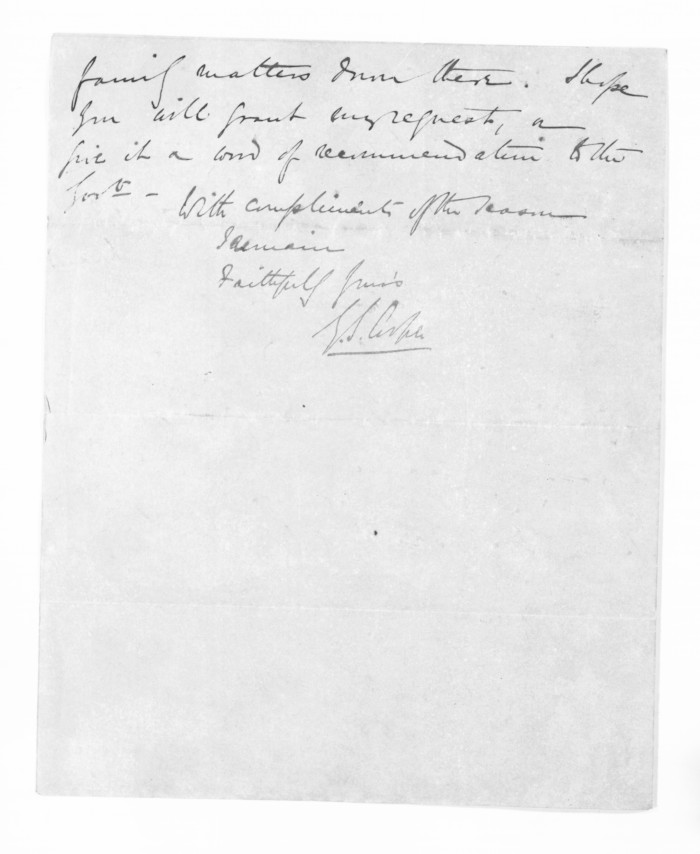 family matters down there. I hope
you will grant my request, or
give it a word of recommendation to the
Govt -
With compliments of the season
I remain
Faithfully yours
G.S. Cooper